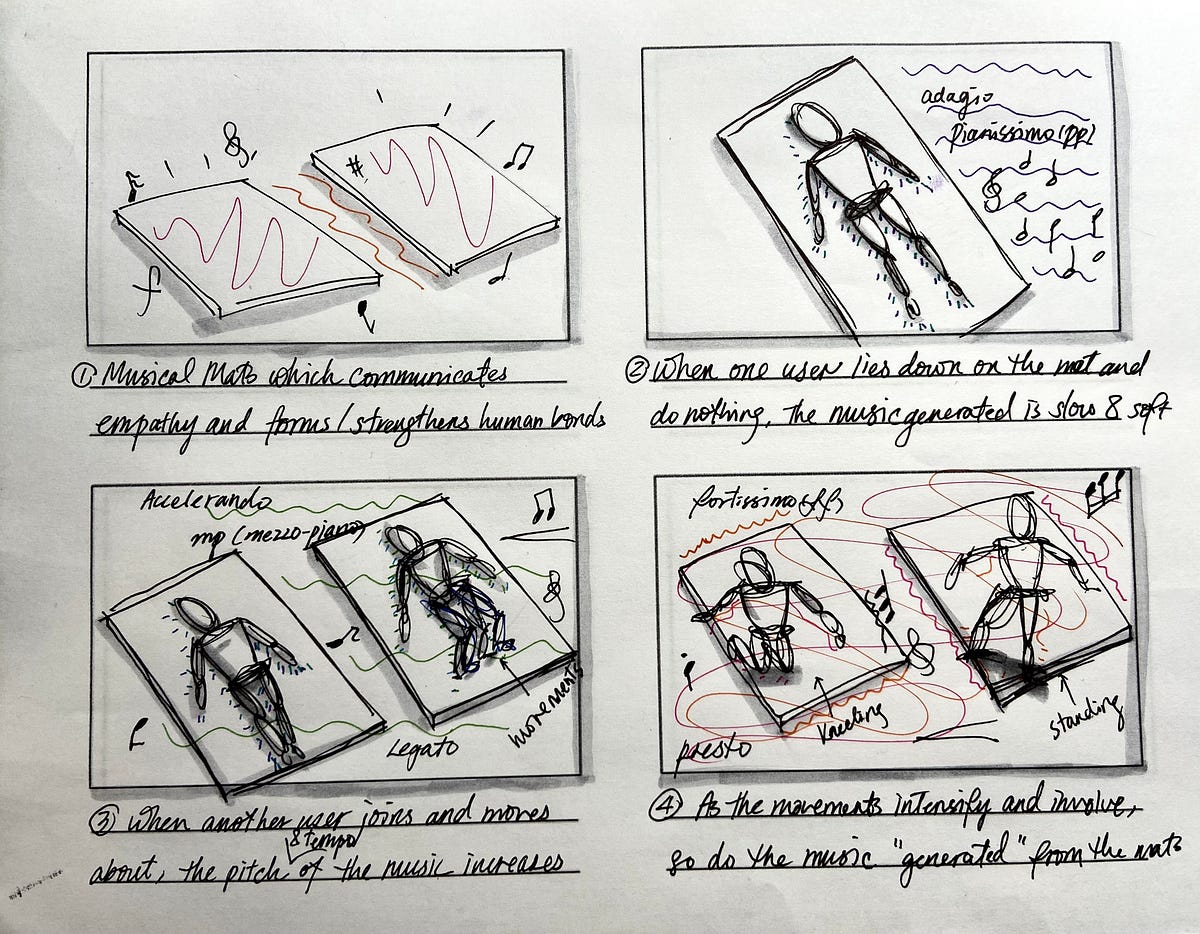 ① Musical Mats which communicates
empathy and forms / strengthens human bonds
adagio
Pianissimo (pp)
② When one user lies down on the mat and
do nothing, the music generated is slow & soft
Accelerando
mp (mezzo-piano)
Legato
movements
③ When another user joins and moves
& tempo
about, the pitch of the music increases
fortissimo (ff)
presto
kneeling
standing
④ As the movements intensify and involve,
so do the music "generated" from the mats